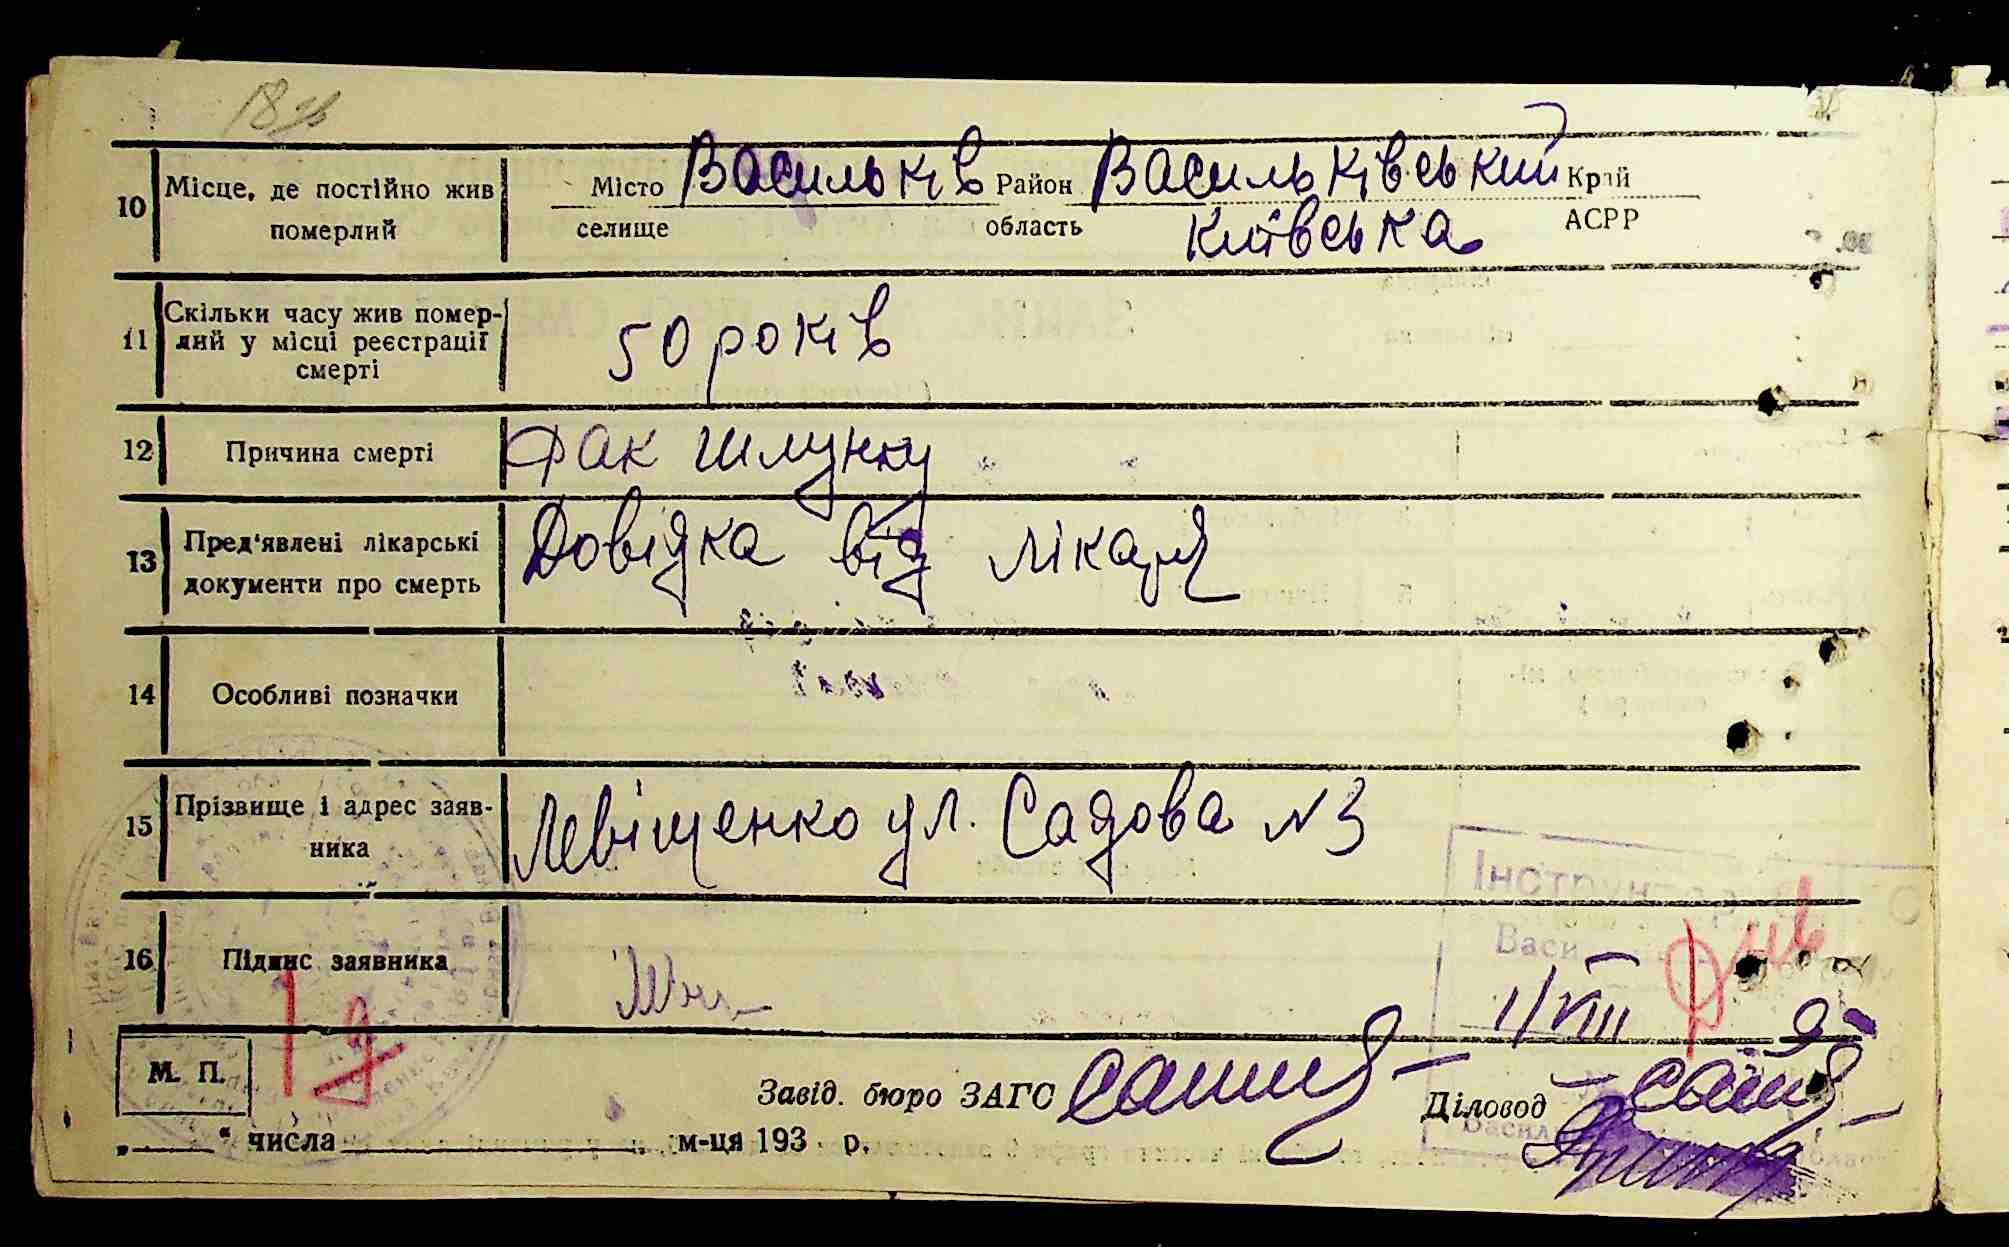 10 Місце, де постійно жив померлий
Місто Васильків Район Васильківський Край
селище область Київська АСРР
11 Скільки часу жив помер-
лий у місці реєстрації
смерті
50 років
12 Причина смерті
Рак шлунку
13 Пред'явлені лікарські
документи про смерть
Довідка від лікаря
14 Особливі позначки
15 Прізвище і адрес заяв-
ника
Левіщенко ул. Садова N3
16 Підпис заявника
Інструктор
Васи
1/VIII
М. П.
Завід. бюро ЗАГС
Діловод
„ “ числа м-ця 193 р.